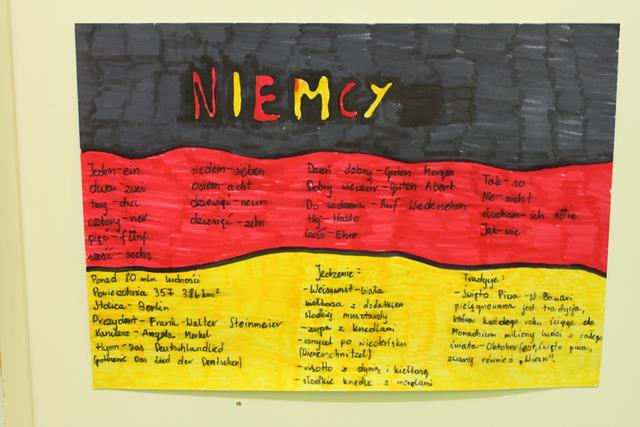 NIEMCY
Jeden-ein
dwa-zwei
trzy-drei
cztery-vier
pięć-fünf
sześć-sechs
siedem-sieben
osiem-acht
dziewięć-neun
dziesięć-zehn
Dzień dobry-Guten Morgen
Dobry wieczór-Guten Abent
Do widzenia-Auf Wiedersehen
Hej-Hallo
Cześć-Ehre
Tak-so
Nie-nicht
słucham-ich höre
Jak-wie
Ponad 80 mln. ludności
Powierzchnia 357 386 km²
Stolica-Berlin
Prezydent-Frank-Walter Steinmeier
Kanclerz-Angela Merkel
Hymn-Das Deutschlandlied
(potocznie Das Lied der Deutschen)
Jedzenie:
-Weisswurst-biała
kiełbasa z dodatkiem
słodkiej musztardy
-zupa z knedlami
-sznycel po wiedeńsku
(Wienerschnitzel)
-risotto z dynią i kiełbasą
-słodkie knedle z morelami
Tradycje:
-Święto Piwa-W Bawari
pielęgnowana jest tradycja,
która każdego roku ściąga do
Monachium miliony ludzi z całego
świata-Oktoberfest, święto piwa,
zwany również „Wiesn".